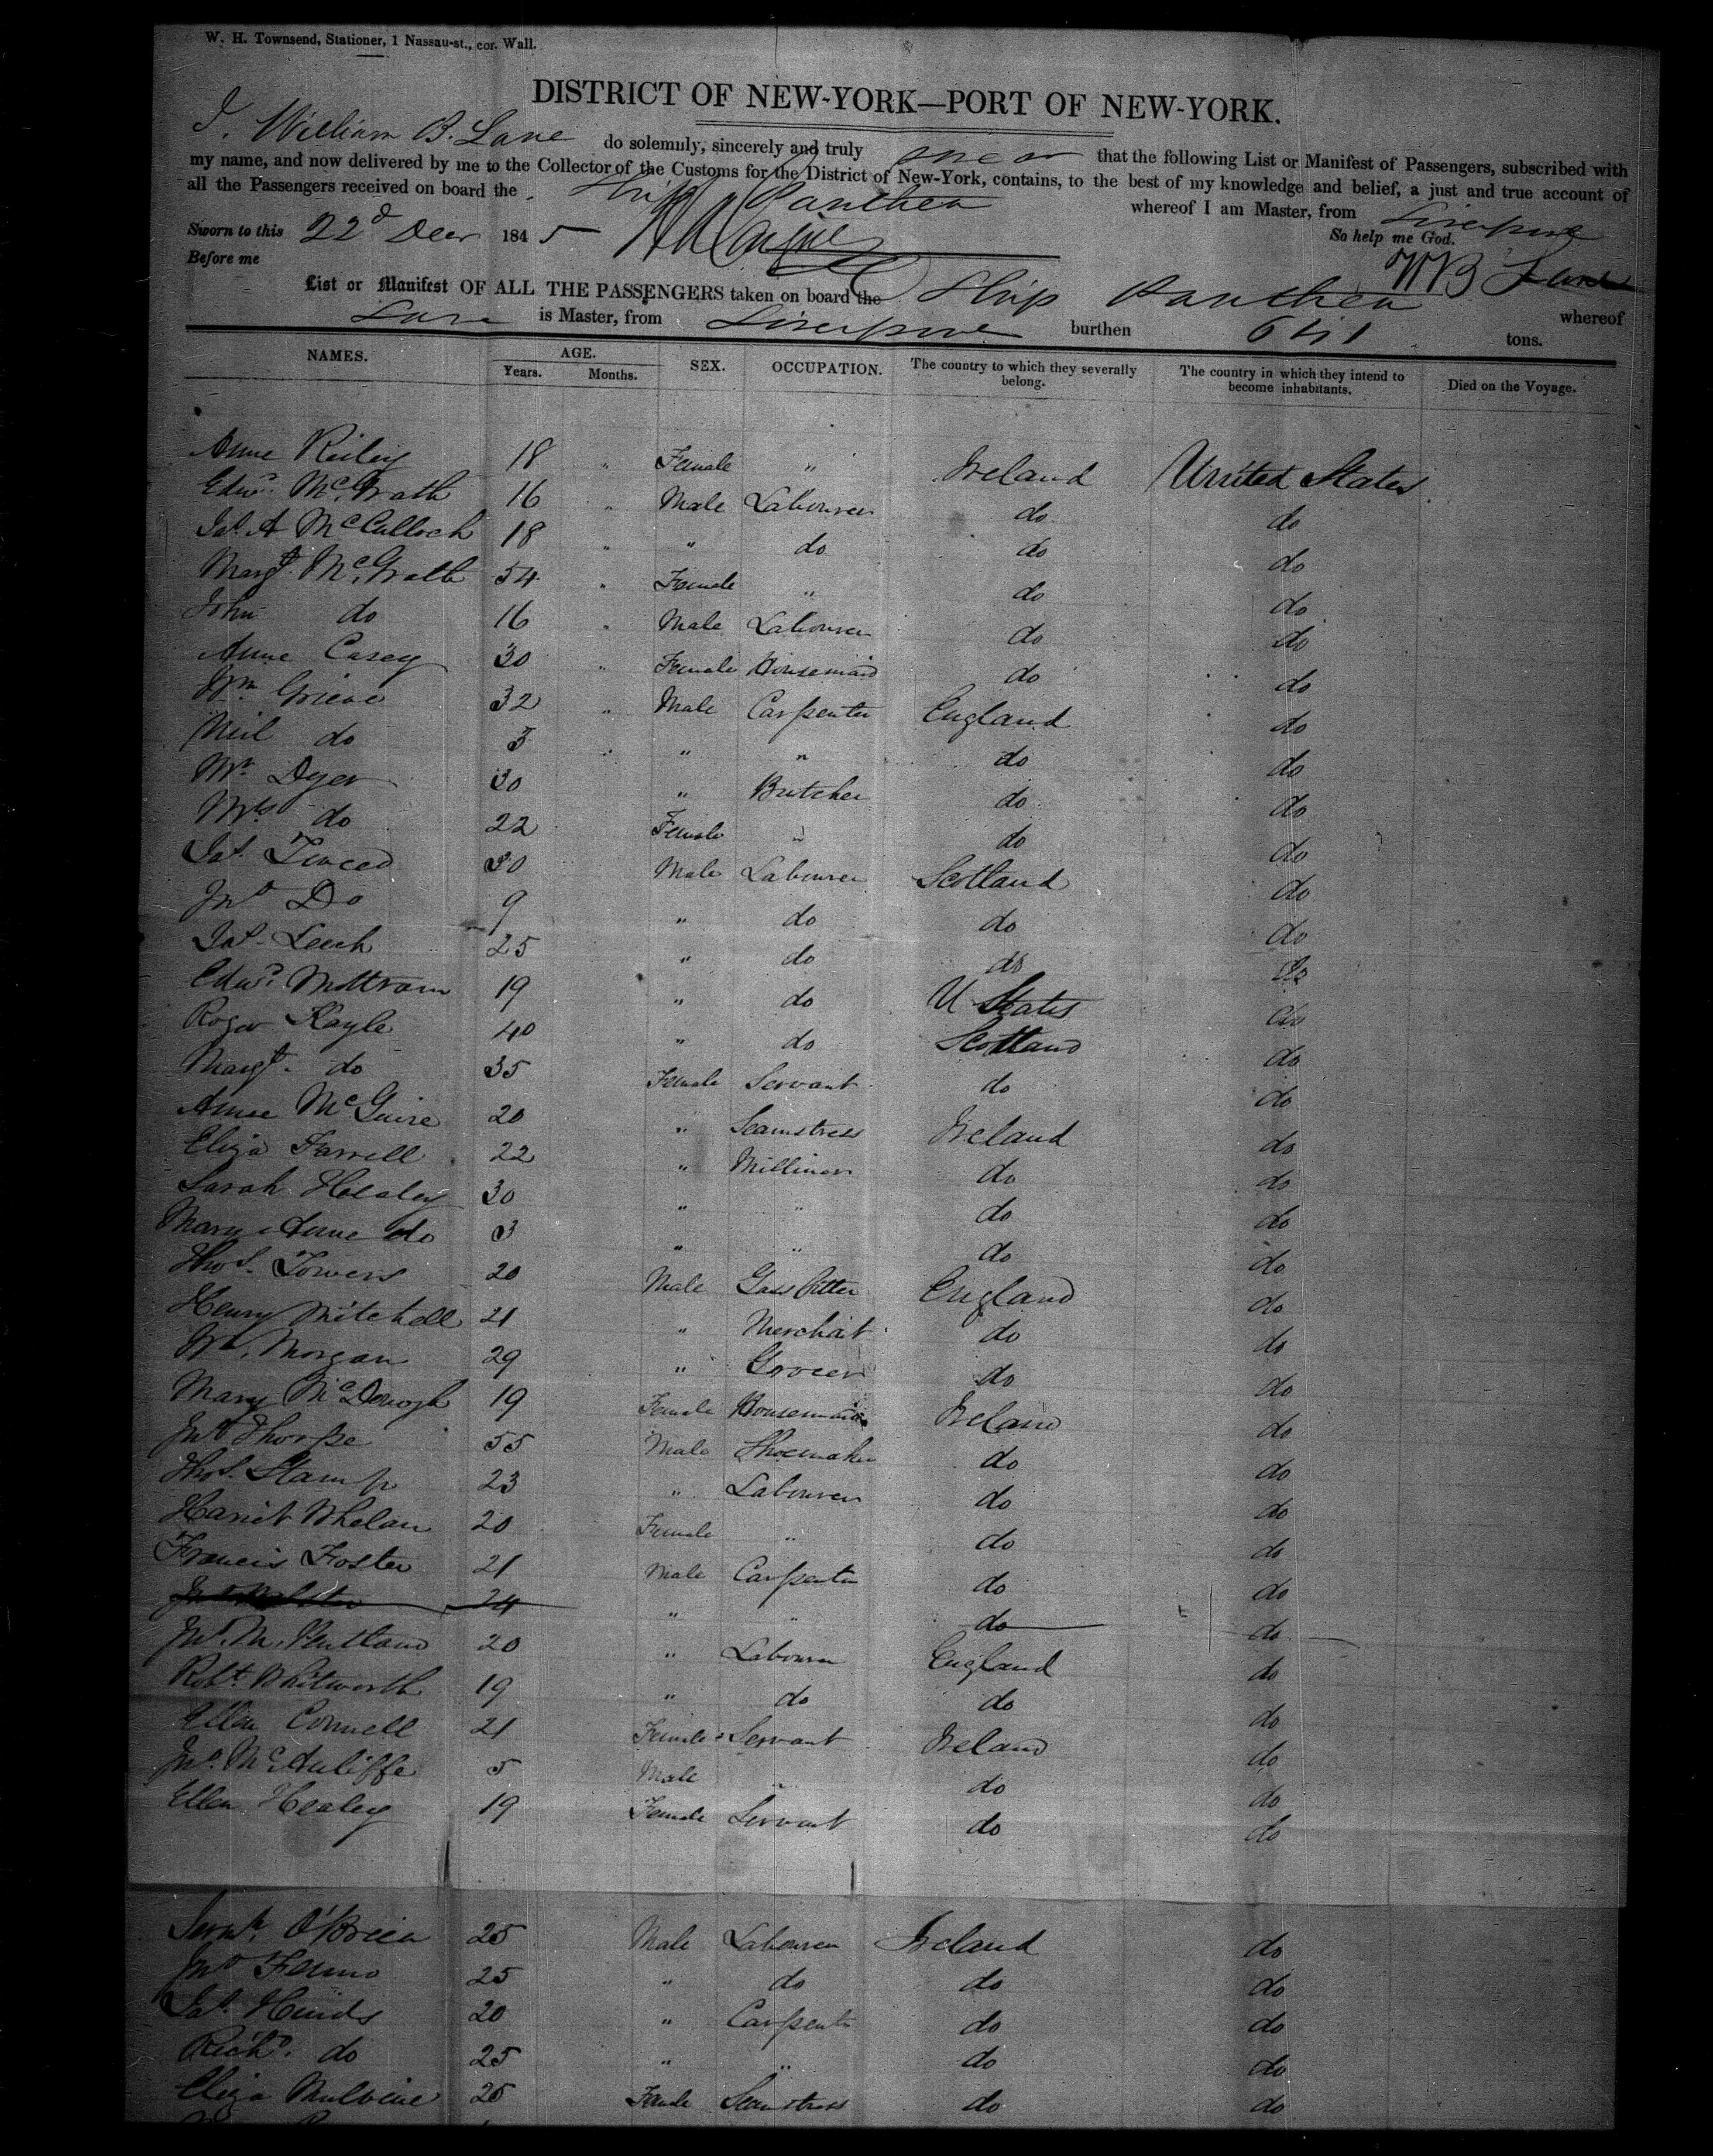 W. H. Townsend, Stationer, 1 Nassau-st., cor. Wall.
DISTRICT OF NEW-YORK—PORT OF NEW-YORK.
I, William B. Lane do solemnly, sincerely and truly swear that the following List or Manifest of Passengers, subscribed with
my name, and now delivered by me to the Collector of the Customs for the District of New-York, contains, to the best of my knowledge and belief, a just and true account of
all the Passengers received on board the Ship Panthea whereof I am Master, from Liverpool
Sworn to this 22d Decr 1845 So help me God.
Before me WB Lane
List or Manifest OF ALL THE PASSENGERS taken on board the Ship Panthea whereof
Lane is Master, from Liverpool burthen tons.
NAMES. AGE. SEX. OCCUPATION. The country to which they severally belong. The country in which they intend to become inhabitants. Died on the Voyage.
Years. Months.
Anne Reiley 18 " Female " Ireland United States
Edwd. McGrath 16 " Male Labourer do do
Jas. A McCulloch 18 " " do do do
Margt. McGrath 54 " Female " do do
John do 16 " Male Labourer do do
Anne Casey 30 " Female Housemaid do do
Wm Grieve 32 " Male Carpenter England do
Neil do 3 " " " do do
Mr. Dyer 30 " Butcher do do
Mrs do 22 Female " do do
Jas. 30 Male Labourer Scotland do
Jno Do 9 " do do do
Jas. Leech 25 " do do do
Edwd. Mottram 19 " do U States do
Roger Kayle 40 " do Scotland do
Margt. do 35 Female Servant do do
Anne McGuire 20 " Seamstress Ireland do
Eliza Farrell 22 " Milliner do do
Sarah Healey 30 " " do do
Mary Anne do 3 " " do do
Thos. Towers 20 Male Gasfitter England do
Henry Mitchell 21 " Merchant do do
Wm. Morgan 29 " Grocer do do
Mary McDonogh 19 Female Housemaid Ireland do
Jno Thorpe 55 Male Shoemaker do do
Thos. Stamp 23 " Labourer do do
Harriet Whelan 20 Female " do do
Francis Foster 21 Male Carpenter do do
24 " " do do
Jno. M. Pentland 20 " Labourer England do
Robt. Whitworth 19 " do do do
Ellen Connell 21 Female Servant Ireland do
Jno. McAuliffe 5 Male " do do
Ellen Healey 19 Female Servant do do
O'Brien 25 Male Labourer Ireland do
Jno 25 " do do do
Jas. Hinds 20 " Carpenter do do
Richd. do 25 " " do do
Eliza Mulvine 25 Female Seamstress do do